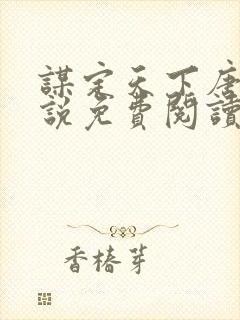 謀定天下唐
說免費閱讀
香椿芽